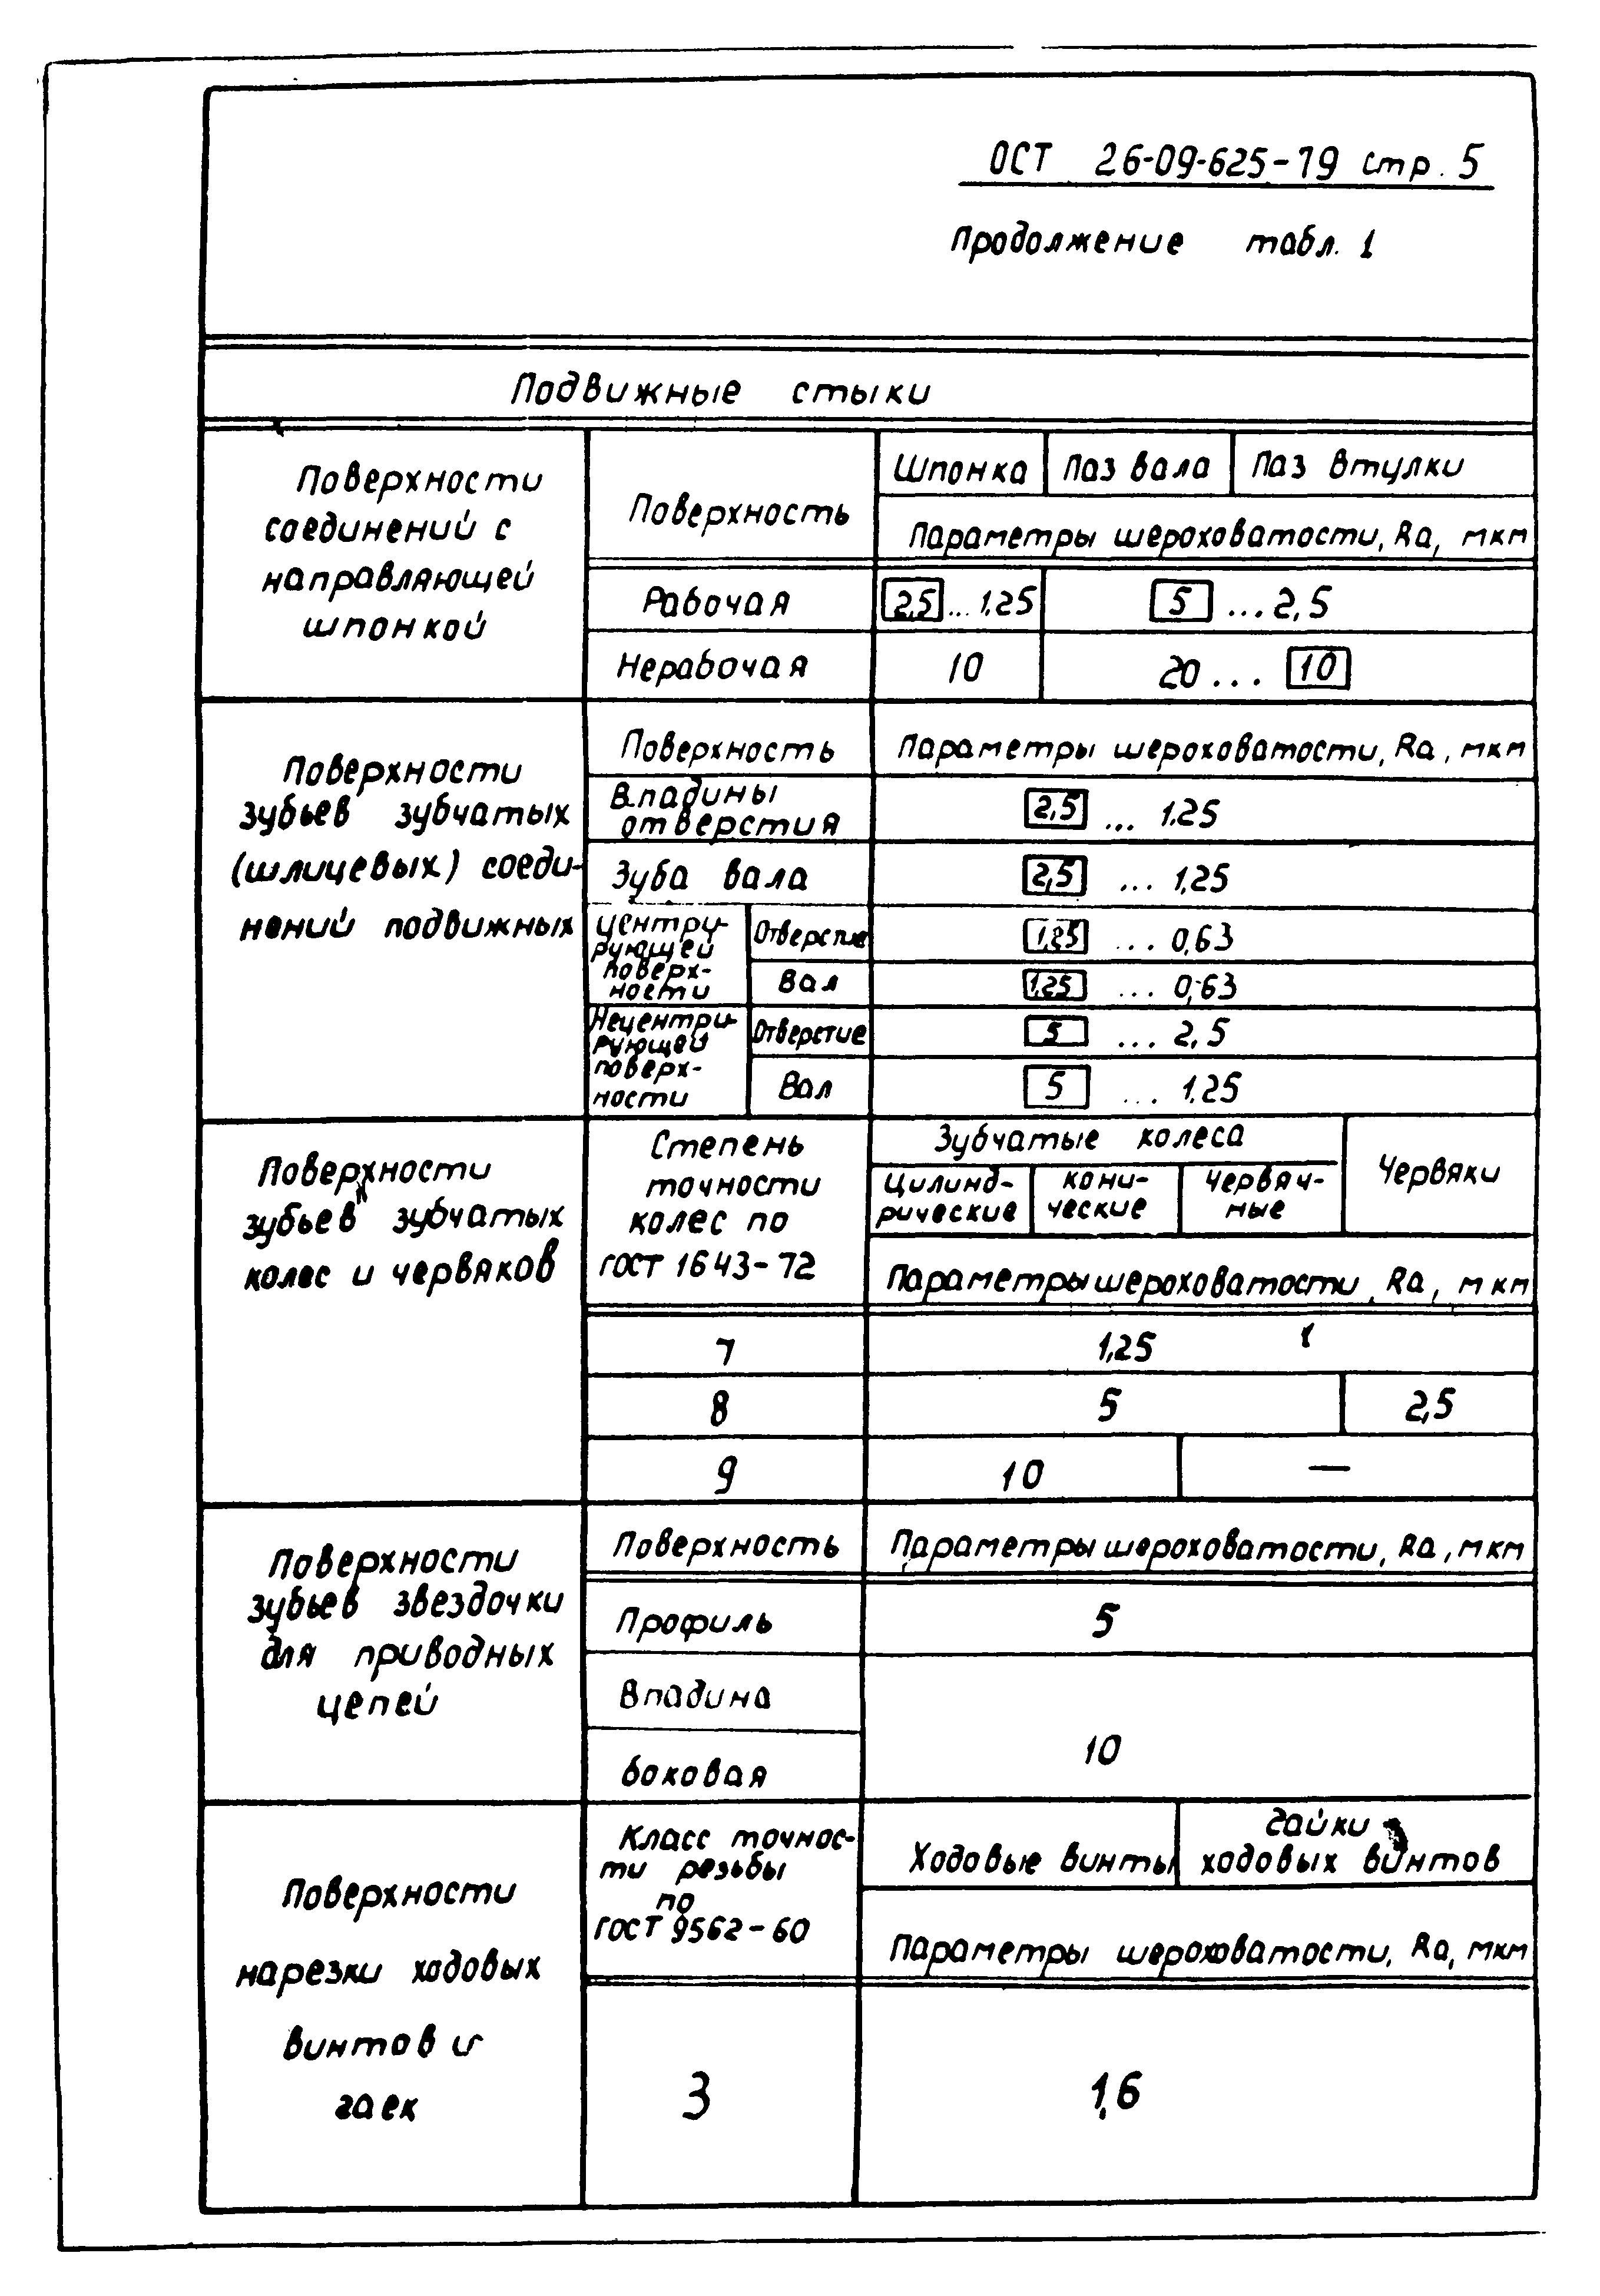 ОСТ 26-09-625-79 стр. 5
Продолжение табл. 1
Подвижные стыки
Поверхности
соединений с
направляющей
шпонкой
Поверхность
Шпонка
Паз вала
Паз втулки
Параметры шероховатости, Ra, мкм
Рабочая
2,5 ... 1,25
5 ... 2,5
Нерабочая
10
20 ... 10
Поверхности
зубьев зубчатых
(шлицевых) соеди-
нений подвижных
Поверхность
Параметры шероховатости, Ra, мкм
Впадины
отверстия
2,5 ... 1,25
Зуба вала
2,5 ... 1,25
центри-
рующей
поверх-
ности
Отверстие
1,25 ... 0,63
Вал
1,25 ... 0,63
Нецентри-
рующей
поверх-
ности
Отверстие
5 ... 2,5
Вал
5 ... 1,25
Поверхности
зубьев зубчатых
колес и червяков
Степень
точности
колес по
ГОСТ 1643-72
Зубчатые колеса
Цилинд-
рические
кони-
ческие
червяч-
ные
Червяки
Параметры шероховатости, Ra, мкм
7
1,25
8
5
2,5
9
10
—
Поверхности
зубьев звездочки
для приводных
цепей
Поверхность
Параметры шероховатости, Ra, мкм
Профиль
5
Впадина
боковая
10
Поверхности
нарезки ходовых
винтов и
гаек
Класс точнос-
ти резьбы
по
ГОСТ 9562-60
Ходовые винты
гайки
ходовых винтов
Параметры шероховатости, Ra, мкм
3
1,6